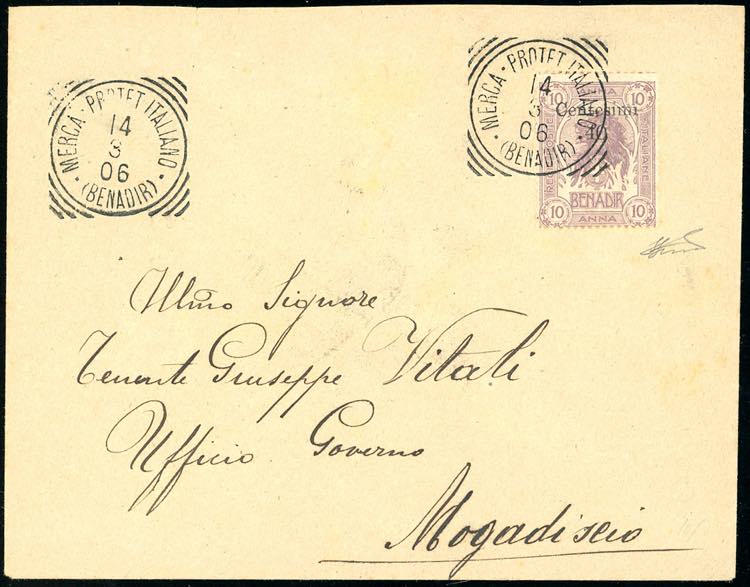 MERCA · PROTET ITALIANO ·
14
3
06
(BENADIR)
MERCA · PROTET ITALIANO ·
14
3
06
(BENADIR)
10 10
Centesimi
40
10 BENADIR 10
ANNA
Illmo Signore
Tenente Giuseppe Vitali
Ufficio Governo
Mogadiscio